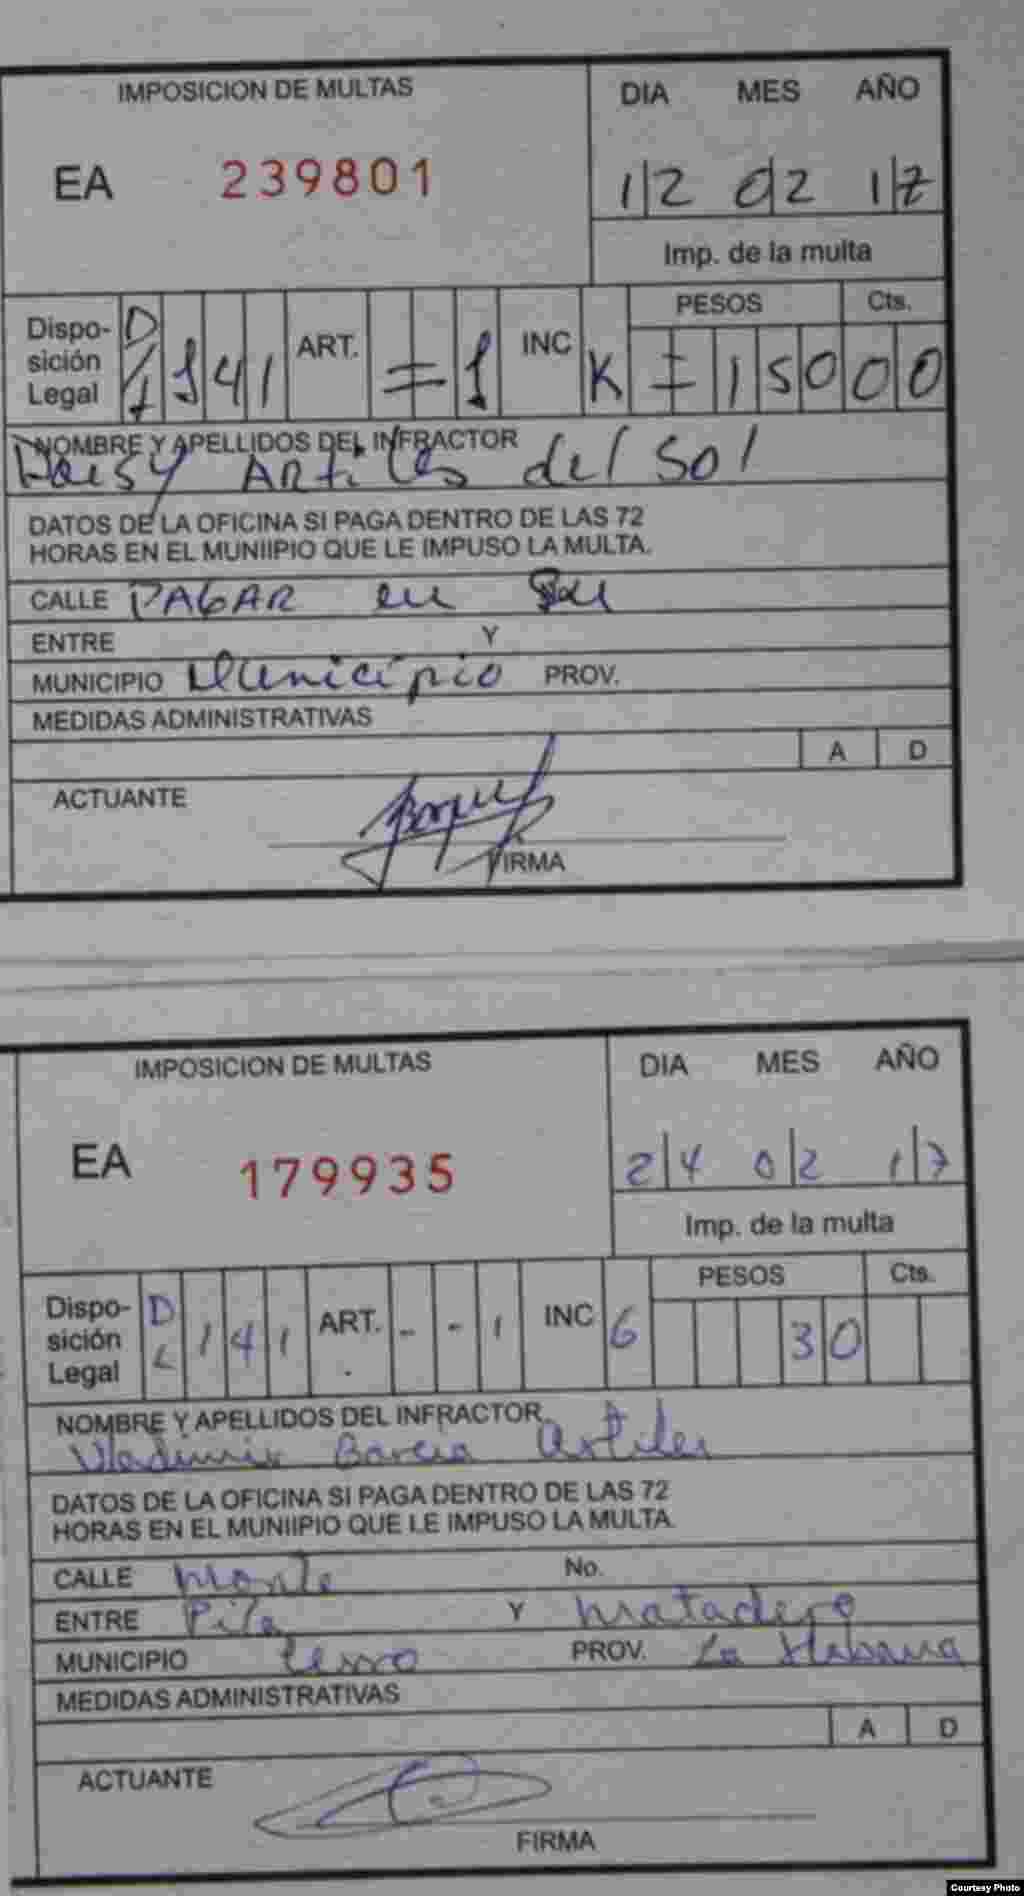 IMPOSICION DE MULTAS DIA MES AÑO
EA 239801 12 02 17
Imp. de la multa
PESOS Cts.
Dispo-sición Legal DL 141 ART. = 1 INC K = 150 00
NOMBRE Y APELLIDOS DEL INFRACTOR
Daisy Artiles del Sol
DATOS DE LA OFICINA SI PAGA DENTRO DE LAS 72
HORAS EN EL MUNIIPIO QUE LE IMPUSO LA MULTA.
CALLE PAGAR en Su
ENTRE Y
MUNICIPIO Municipio PROV.
MEDIDAS ADMINISTRATIVAS
A D
ACTUANTE
FIRMA
IMPOSICION DE MULTAS DIA MES AÑO
EA 179935 24 02 17
Imp. de la multa
PESOS Cts.
Dispo-sición Legal DL 141 ART. - - 1 INC 6 30
NOMBRE Y APELLIDOS DEL INFRACTOR
Vladimir Garcia Artiles
DATOS DE LA OFICINA SI PAGA DENTRO DE LAS 72
HORAS EN EL MUNIIPIO QUE LE IMPUSO LA MULTA.
CALLE Monte No.
ENTRE Pila Y Matadero
MUNICIPIO Cerro PROV. La Habana
MEDIDAS ADMINISTRATIVAS
A D
ACTUANTE
FIRMA
Courtesy Photo